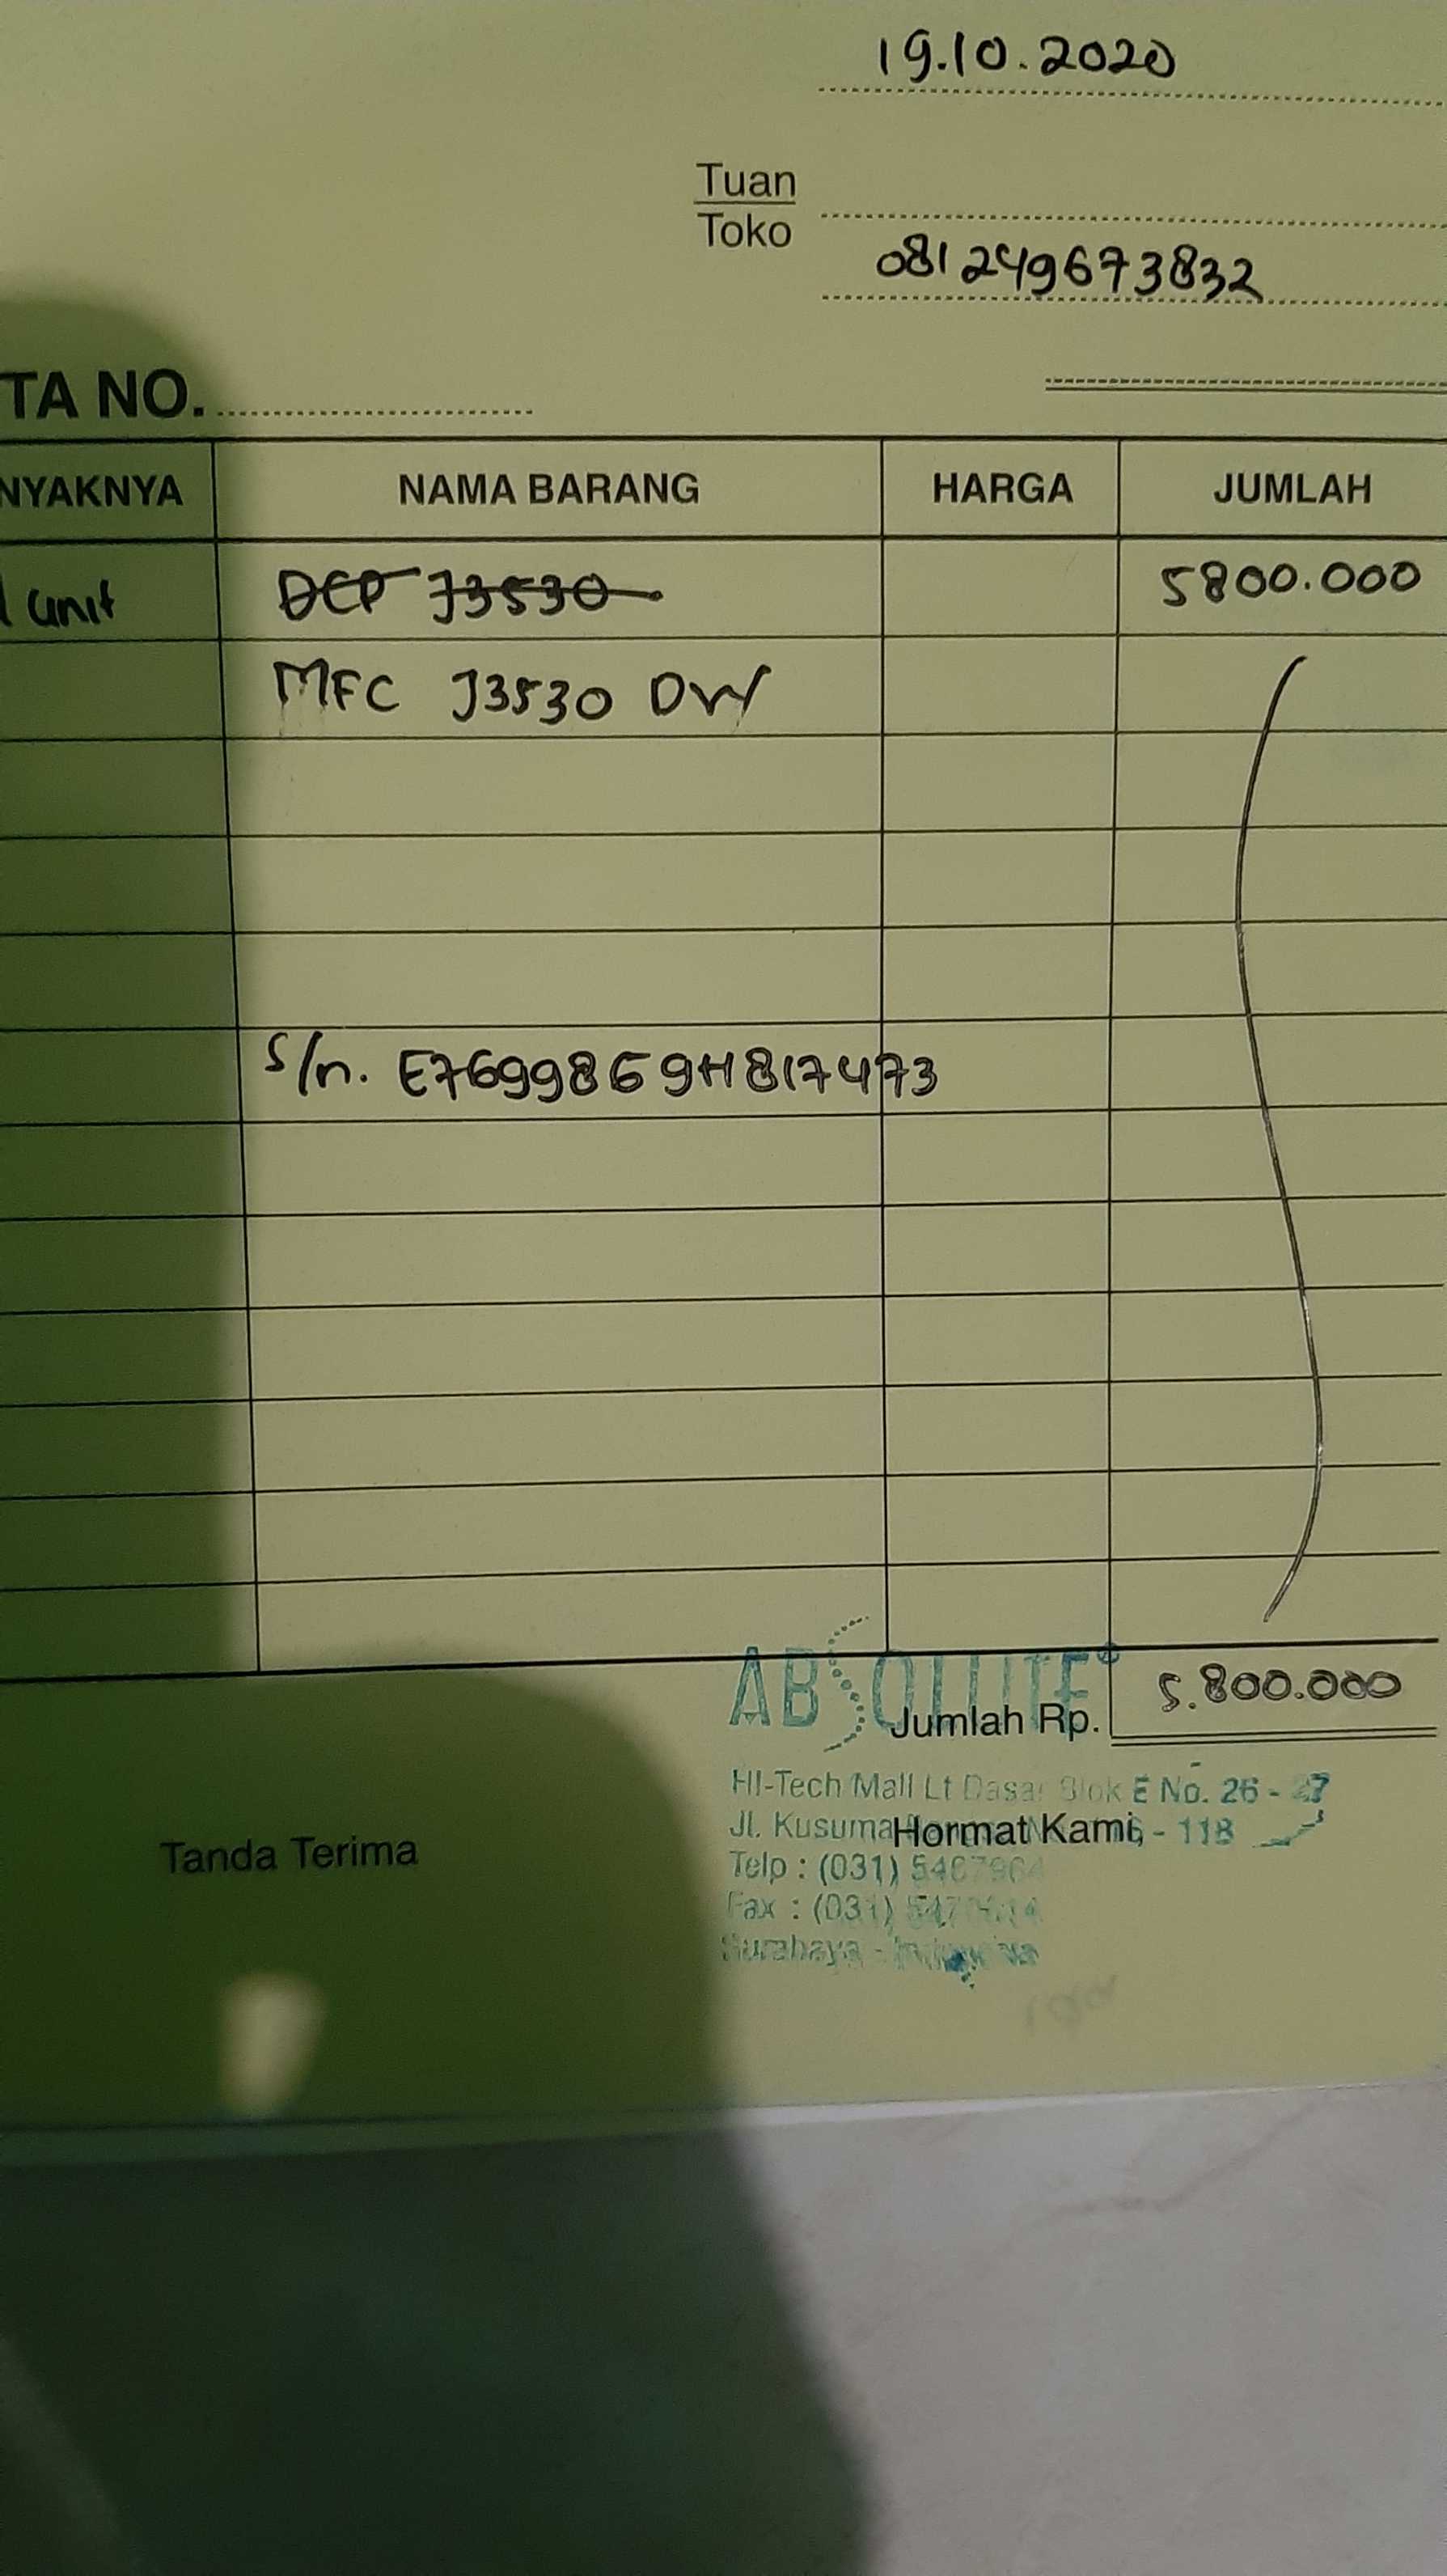 19.10.2020
Tuan
Toko
081249673832
TA NO.
NYAKNYA NAMA BARANG HARGA JUMLAH
1 unit DCP J3530 5800.000
MFC J3530 DW
S/n. E7699869H817473
ABSOLUTE
Jumlah Rp. 5.800.000
HI-Tech Mall Lt Dasar Blok E No. 26 - 27
Jl. Kusuma - 118
Hormat Kami,
Tanda Terima
Telp : (031)
Fax : (031)
Surabaya - Indonesia